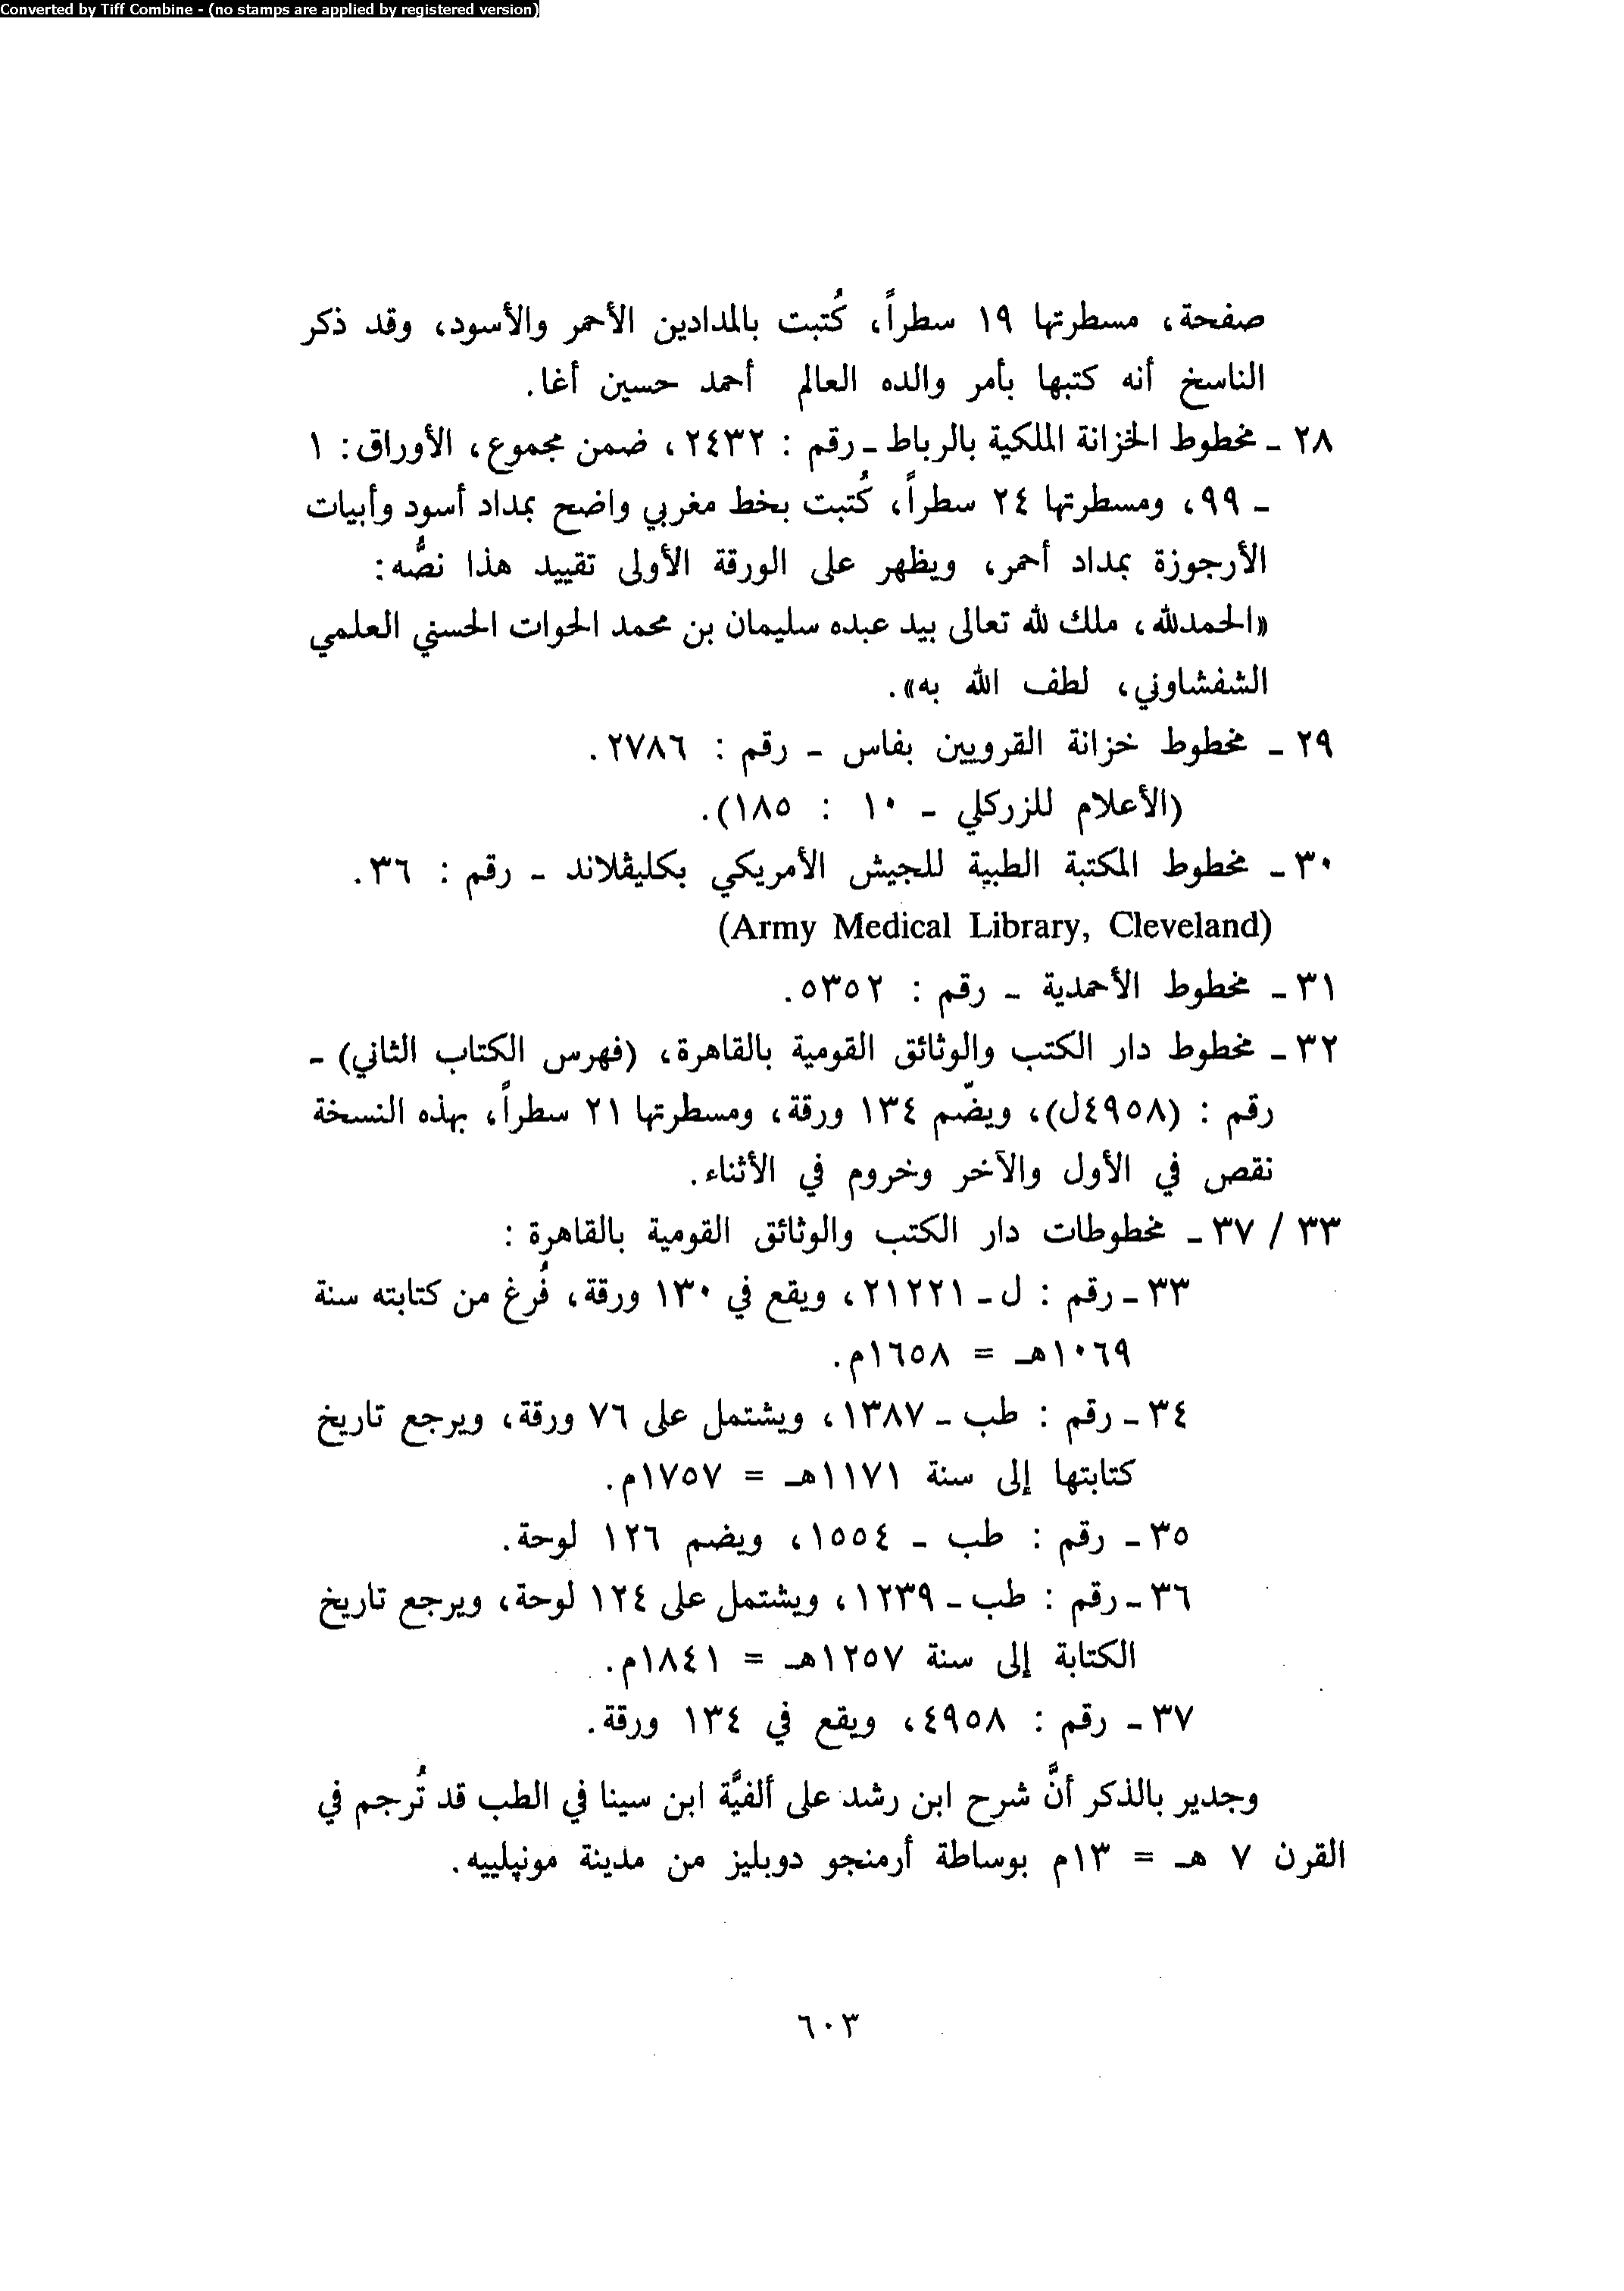 Converted by Tiff Combine - (no stamps are applied by registered version)
صفحة، مسطرتها ١٩ سطراً، كُتبت بالمدادين الأحمر والأسود، وقد ذكر
الناسخ أنه كتبها بأمر والده العالم أحمد حسين أغا.
٢٨ - مخطوط الخزانة الملكية بالرباط - رقم : ٢٤٣٢، ضمن مجموع، الأوراق: ١
- ٩٩، ومسطرتها ٢٤ سطراً، كُتبت بخط مغربي واضح بمداد أسود وأبيات
الأرجوزة بمداد أحمر، ويظهر على الورقة الأولى تقييد هذا نصُّه:
«الحمدلله، ملك لله تعالى بيد عبده سليمان بن محمد الحوات الحسني العلمي
الشفشاوني، لطف الله به».
٢٩ - مخطوط خزانة القرويين بفاس - رقم : ٢٧٨٦.
(الأعلام للزركلي - ١٠ : ١٨٥).
٣٠ - مخطوط المكتبة الطبية للجيش الأمريكي بكليڤلاند - رقم : ٣٦.
(Army Medical Library, Cleveland)
٣١ - مخطوط الأحمدية - رقم : ٥٣٥٢.
٣٢ - مخطوط دار الكتب والوثائق القومية بالقاهرة، (فهرس الكتاب الثاني) -
رقم : (٤٩٥٨ل)، ويضّم ١٣٤ ورقة، ومسطرتها ٢١ سطراً، بهذه النسخة
نقص في الأول والآخر وخروم في الأثناء.
٣٣ / ٣٧ - مخطوطات دار الكتب والوثائق القومية بالقاهرة :
٣٣ - رقم : ل - ٢١٢٢١، ويقع في ١٣٠ ورقة، فُرغ من كتابته سنة
١٠٦٩هـ = ١٦٥٨م.
٣٤ - رقم : طب - ١٣٨٧، ويشتمل على ٧٦ ورقة، ويرجع تاريخ
كتابتها إلى سنة ١١٧١هـ = ١٧٥٧م.
٣٥ - رقم : طب - ١٥٥٤، ويضم ١٢٦ لوحة.
٣٦ - رقم : طب - ١٢٣٩، ويشتمل على ١٢٤ لوحة، ويرجع تاريخ
الكتابة إلى سنة ١٢٥٧هـ = ١٨٤١م.
٣٧ - رقم : ٤٩٥٨، ويقع في ١٣٤ ورقة.
وجدير بالذكر أنَّ شرح ابن رشد على ألفيَّة ابن سينا في الطب قد تُرجم في
القرن ٧ هـ = ١٣م بوساطة أرمنجو دوبليز من مدينة مونپلييه.
٦٠٣